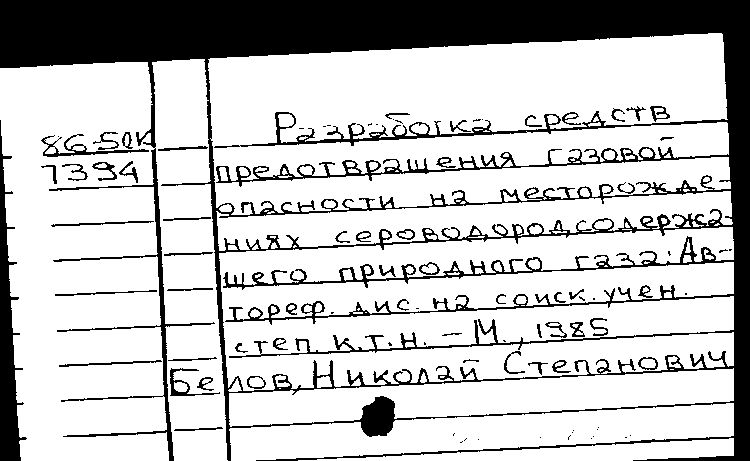 86-50к
7394
Разработка средств
предотвращения газовой
опасности на месторожде-
ниях сероводородсодержа-
щего природного газа: Ав-
тореф. дис. на соиск. учен.
степ. к.т.н. – М., 1985
Белов, Николай Степанович